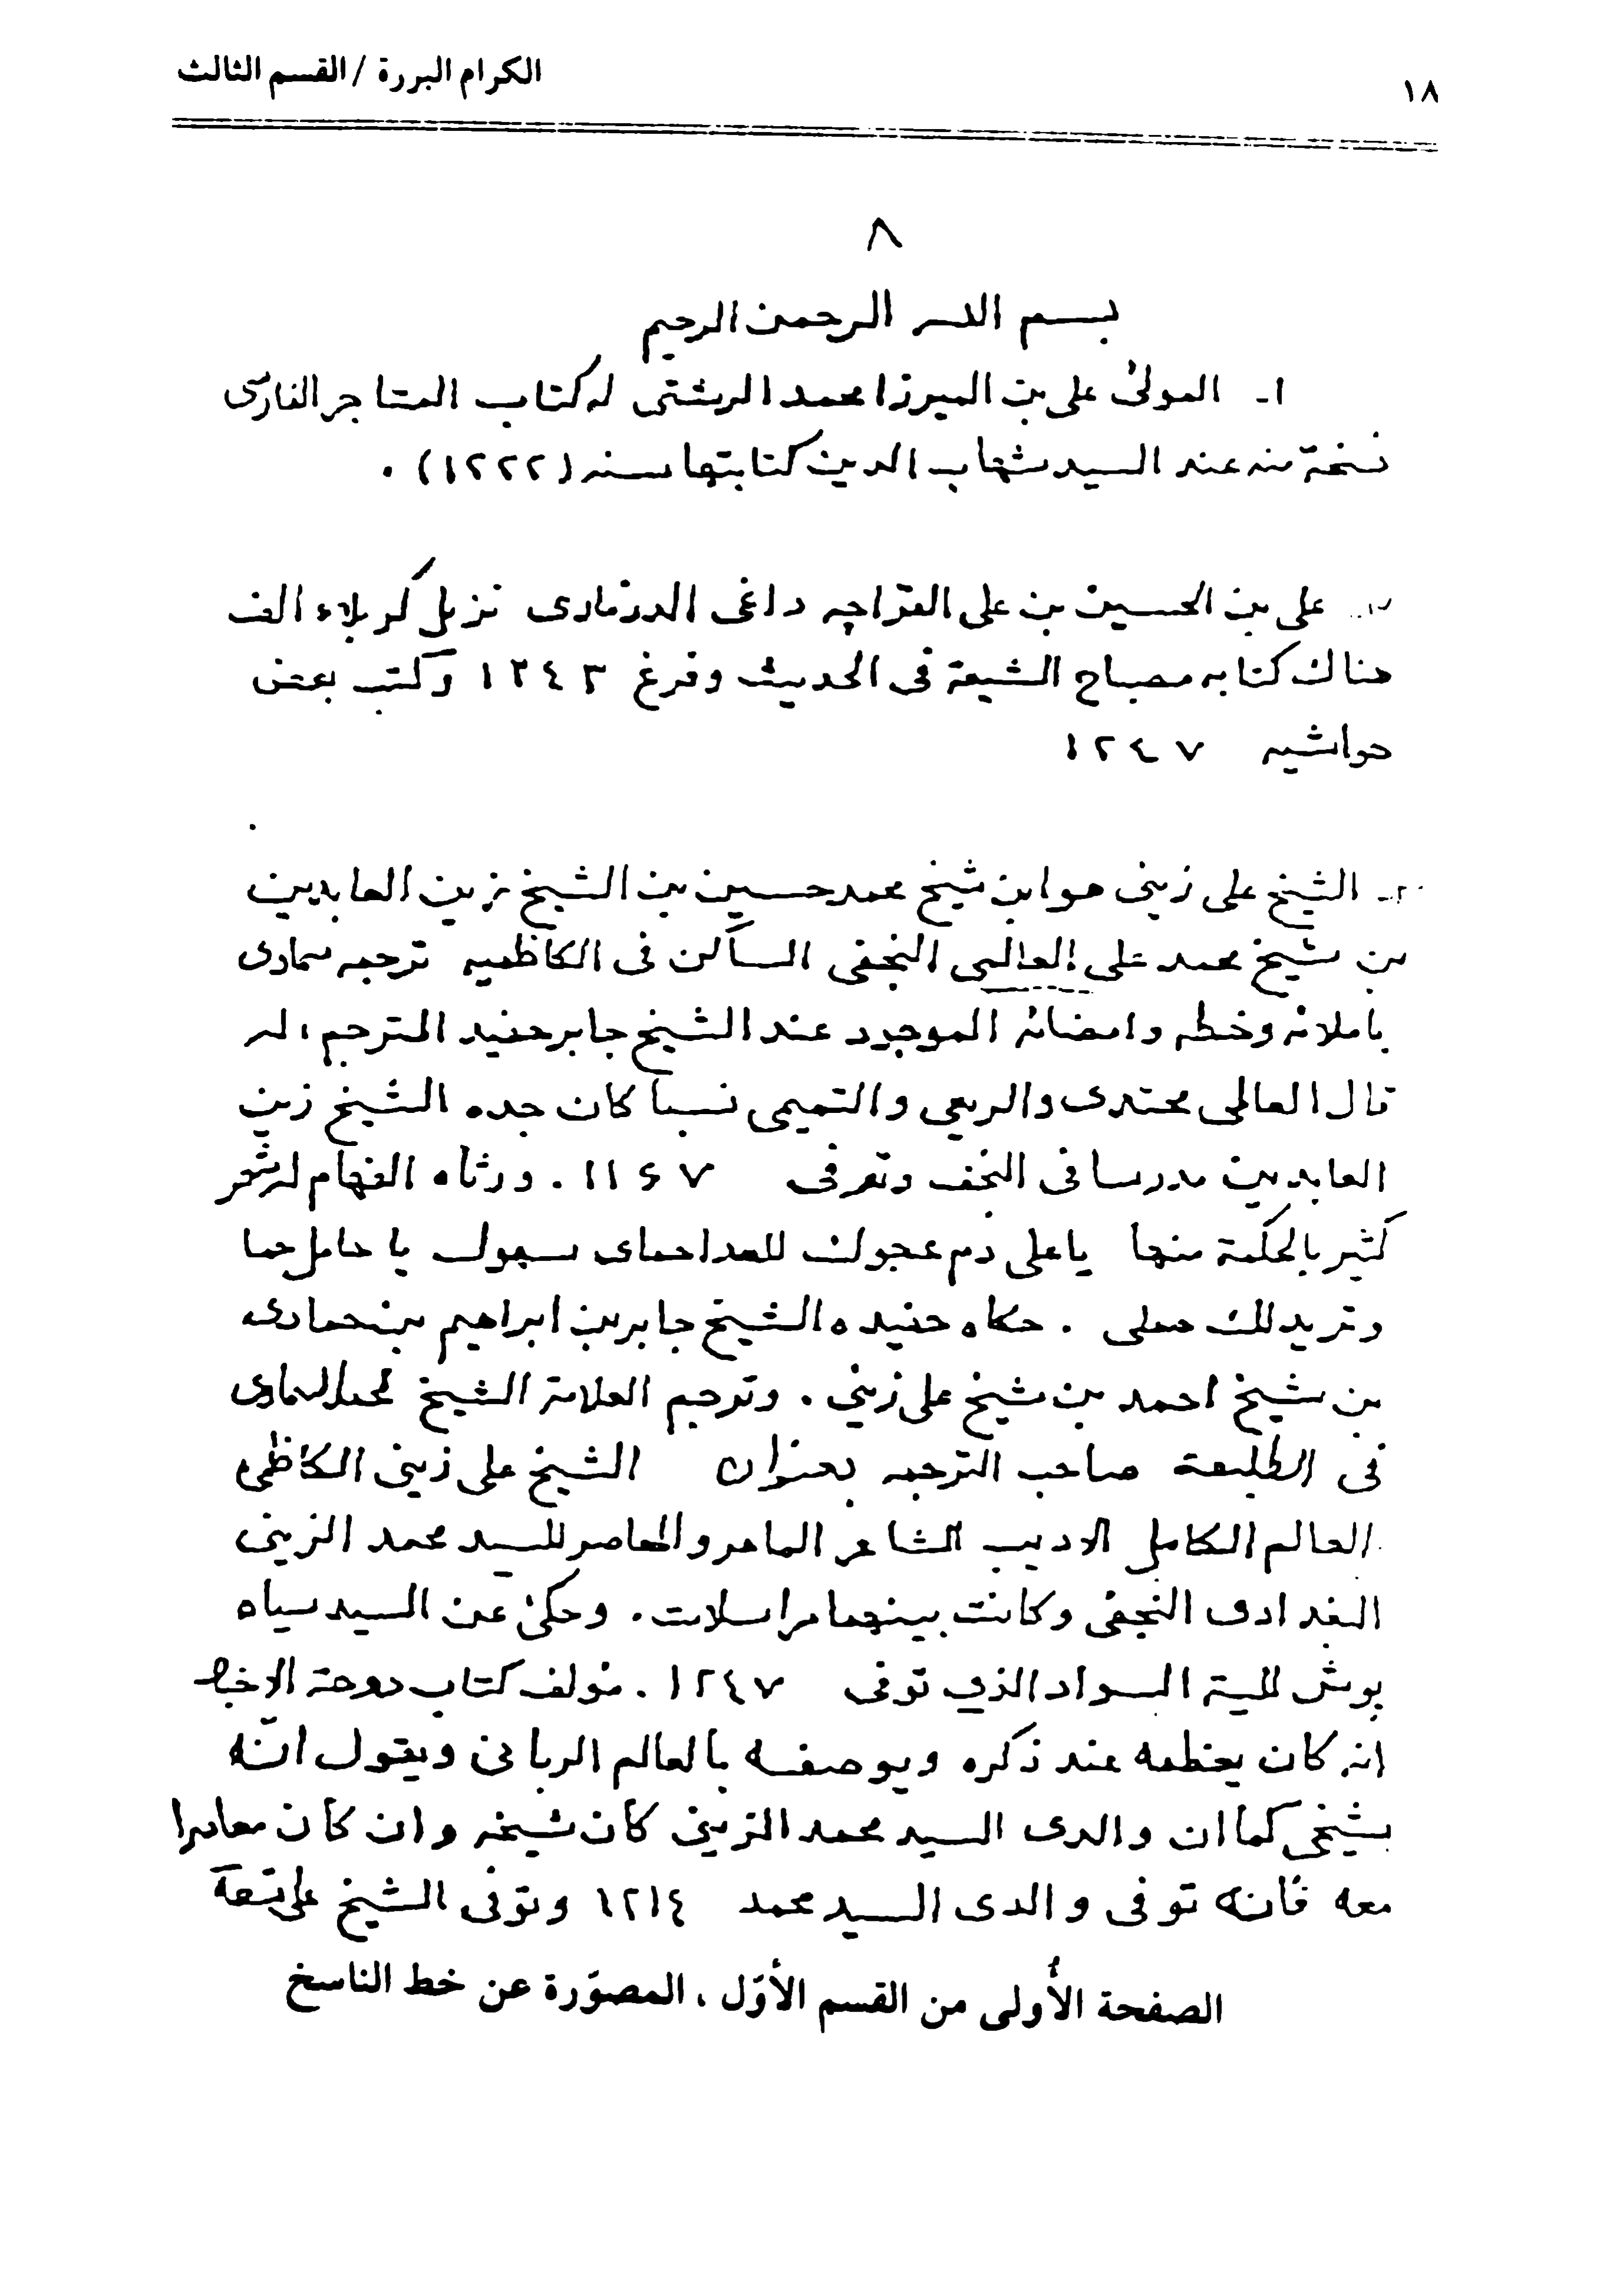 ١٨
الكرام البررة / القسم الثالث
٨
بسم الله الرحمن الرحيم
١- المولى علي بن الميرزا محمد الرشتي له كتاب المتاجر الفارسي
نسخة منه عند السيد شهاب الدين كتابتها سنه (١٢٢٢) .
علي بن الحسين بن علي القراجه داغي الدزماري نزيل كربلاء الف
هناك كتابه مصباح الشيعة في الحديث وفرغ ١٢٤٣ وكتب بعض
حواشيه ١٢٤٧
الشيخ علي زيني هو ابن شيخ محمد حسين بن الشيخ زين العابدين
بن شيخ محمد علي العاملي النجفي الساكن في الكاظميه ترجمه سماوي
باملائه وخطه وامضائه الموجود عند الشيخ جابر حفيد المترجم له
قال العاملي محتدى والربعي والتميمي نسبا كان جده الشيخ زين
العابدين مدرسا في النجف وتوفي ١١٦٧ . ورثاه الفحام له شعر
كثير بالحكمة منها يا علي دم سهول يا حامل حما
وتريد لك حملي . حكاه حفيده الشيخ جابر بن ابراهيم بن حمادي
بن شيخ احمد بن شيخ علي زيني . وترجم العلامة الشيخ محمد السماوي
في الطليعة صاحب الترجمه بعنوان الشيخ علي زيني الكاظمي
العالم الكامل الاديب الشاعر الماهر والمعاصر للسيد محمد الزيني
البغدادي النجفي وكانت بينهما مراسلات . وحكى عن السيد سياه
پوش للبسه السواد الذي توفي ١٢٤٧ . مؤلف كتاب دوحة
انه كان يعظمه عند ذكره ويوصفه بالعالم الرباني ويقول انّه
شيخي كما ان والدي السيد محمد الزيني كان شيخه وان كان معاصرا
معه فانه توفي والدي السيد محمد ١٢١٤ وتوفي الشيخ علي
الصفحة الأُولى من القسم الأوّل ، المصوّرة عن خط الناسخ